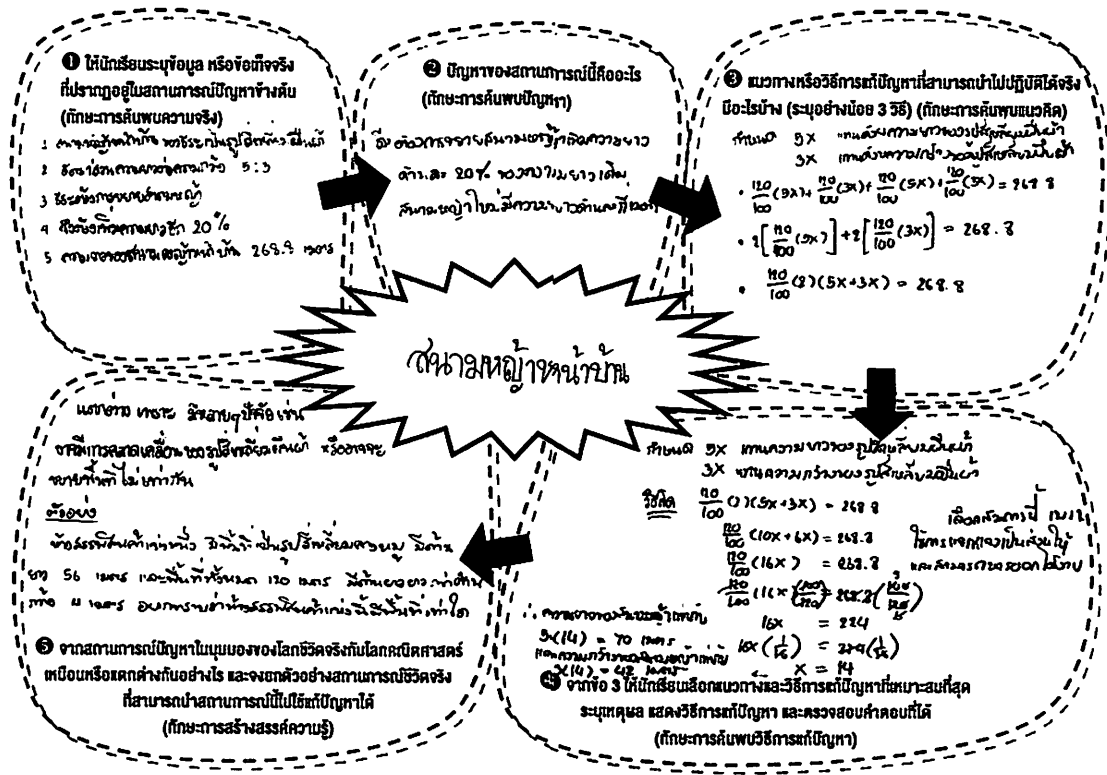 ❶ ให้นักเรียนระบุข้อมูล หรือข้อเท็จจริง
ที่ปรากฏอยู่ในสถานการณ์ปัญหาข้างต้น
(ทักษะการค้นพบความจริง)
2 อัตราส่วนความยาวต่อความกว้าง 5:3
3 ธีระต้องการขยายสนามหญ้า
4 ความยาวอีก 20%
5 ความยาวของสนามหญ้าหน้าบ้าน 268.8 เมตร
❷ ปัญหาของสถานการณ์นี้คืออะไร
(ทักษะการค้นพบปัญหา)
ธีระต้องการขยายสนามหญ้า ความยาว
ด้านละ 20% ของความยาวเดิม
สนามหญ้าใหม่มีความยาวด้านละกี่เมตร
❸ แนวทางหรือวิธีการแก้ปัญหาที่สามารถนำไปปฏิบัติได้จริง
มีอะไรบ้าง (ระบุอย่างน้อย 3 วิธี) (ทักษะการค้นพบแนวคิด)
กำหนด 5x แทนด้วยความยาวของรูปสี่เหลี่ยมผืนผ้า
3x แทนด้วยความกว้างของรูปสี่เหลี่ยมผืนผ้า
• 120/100 (5x) + 120/100 (3x) + 120/100 (5x) + 120/100 (3x) = 268.8
• 2[120/100 (5x)] + 2[120/100 (3x)] = 268.8
• 120/100 (2)(5x+3x) = 268.8
สนามหญ้าหน้าบ้าน
กำหนด 5x แทนความยาวของรูปสี่เหลี่ยมผืนผ้า
3x แทนความกว้างของรูปสี่เหลี่ยมผืนผ้า
วิธีคิด 120/100 (2)(5x+3x) = 268.8
120/100 (10x+6x) = 268.8
120/100 (16x) = 268.8
120/100 (16x)(100/120) = 268.8(100/120)
16x = 224
16x(1/16) = 224(1/16)
x = 14
เลือกสมการนี้
และสามารถ ได้ง่าย
∴ ความยาวของสนามหญ้าเท่ากับ
5(14) = 70 เมตร
และความกว้างของสนามหญ้าเท่ากับ
3(14) = 42 เมตร
❹ จากข้อ 3 ให้นักเรียนเลือกแนวทางและวิธีการแก้ปัญหาที่เหมาะสมที่สุด
ระบุเหตุผล แสดงวิธีการแก้ปัญหา และตรวจสอบคำตอบที่ได้
(ทักษะการค้นพบวิธีการแก้ปัญหา)
แตกต่าง เพราะ มีหลายๆปัจจัย เช่น
อาจมีการคลาดเคลื่อนของรูปสี่เหลี่ยมผืนผ้า หรืออาจจะ
ขยายพื้นที่ไม่เท่ากัน
ตัวอย่าง
ห้างสรรพสินค้าแห่งหนึ่ง มีพื้นที่เป็นรูปสี่เหลี่ยมคางหมู มีด้าน
ยาว 56 เมตร และพื้นที่ทั้งหมด 120 เมตร
เมตร อยากทราบว่าห้างสรรพสินค้าแห่งนี้มีพื้นที่เท่าใด
❺ จากสถานการณ์ปัญหาในมุมมองของโลกชีวิตจริงกับโลกคณิตศาสตร์
เหมือนหรือแตกต่างกันอย่างไร และจงยกตัวอย่างสถานการณ์ชีวิตจริง
ที่สามารถนำสถานการณ์นี้ไปใช้แก้ปัญหาได้
(ทักษะการสร้างสรรค์ความรู้)